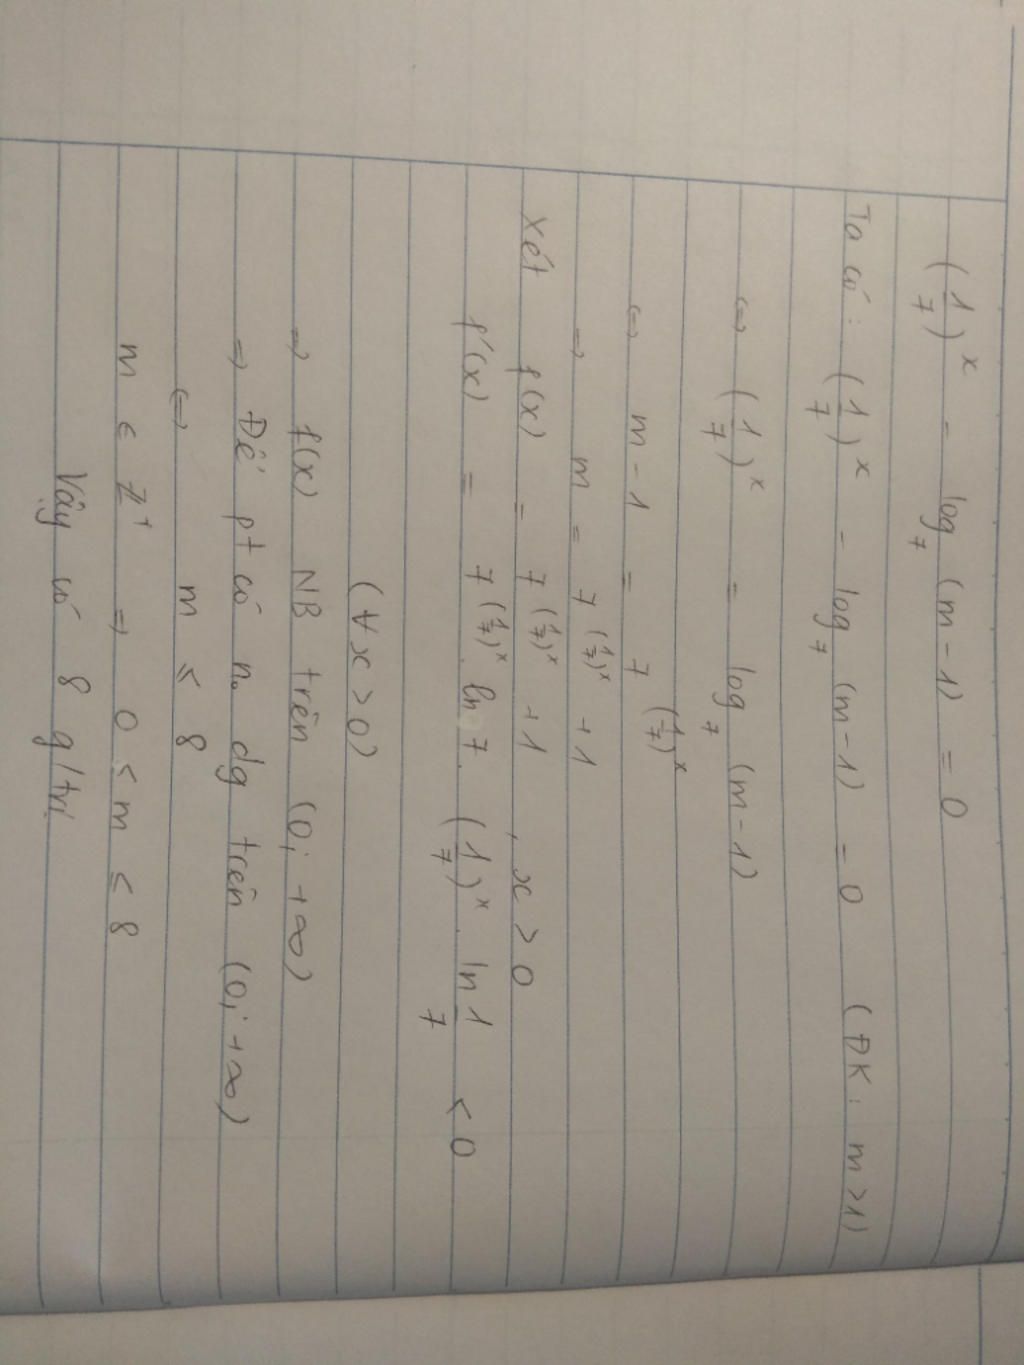 (1/7)^x - log_7 (m-1) = 0
Ta có: (1/7)^x - log_7 (m-1) = 0 (ĐK: m>1)
⇔ (1/7)^x = log_7 (m-1)
⇔ m-1 = 7^(1/7)^x
⇒ m = 7^(1/7)^x + 1
Xét f(x) = 7^(1/7)^x + 1, x > 0
f'(x) = 7^(1/7)^x . ln 7 . (1/7)^x . ln 1/7 < 0
(∀x > 0)
⇒ f(x) NB trên (0; +∞)
⇒ Để pt có n0 dg trên (0; +∞)
⇔ m ≤ 8
m ∈ Z⁺ ⇒ 0 < m ≤ 8
Vậy có 8 g/trị